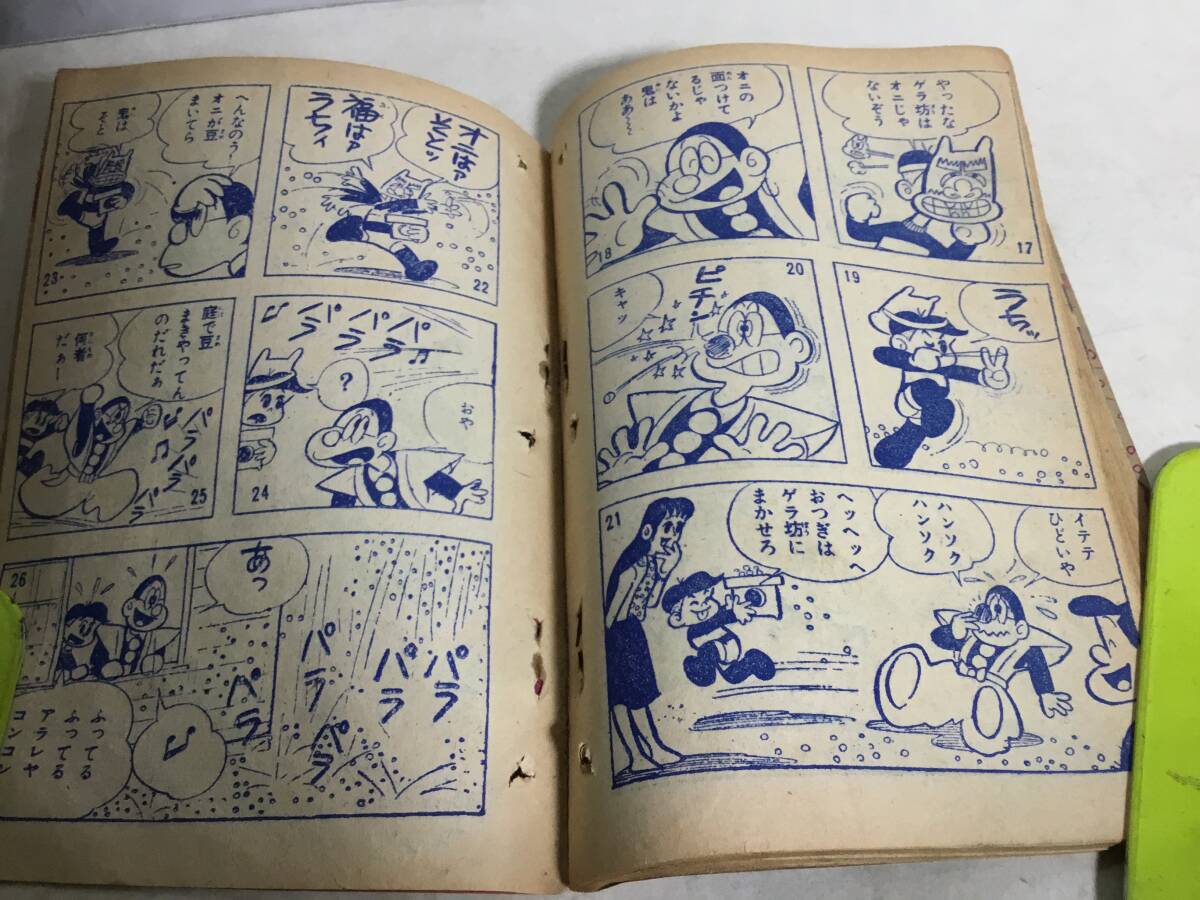 やったな
ゲラ坊は
オニじゃ
ないぞう
17
オニの
面つけて
るじゃ
ないかよ
鬼は
ああ～～
18
ラちッ
19
ピチン
キャッ
20
イテテ
ひどいや
ハンソク
ハンソク
ヘッヘッヘ
おつぎは
ゲラ坊に
まかせろ
21
オはァ
そとッ
福はァ
うちィ
22
へんなのう?
オニが豆
まいてら
鬼は
そと
23
パラパラパラ
おや
?
24
庭で豆
まきやってん
のだれだぁ
何者
だぁー
パラパラパラ
25
あっ
パラ
パラ
パラ
パラ
パラ
ふってる
ふってる
アラレヤ
コンコン
26